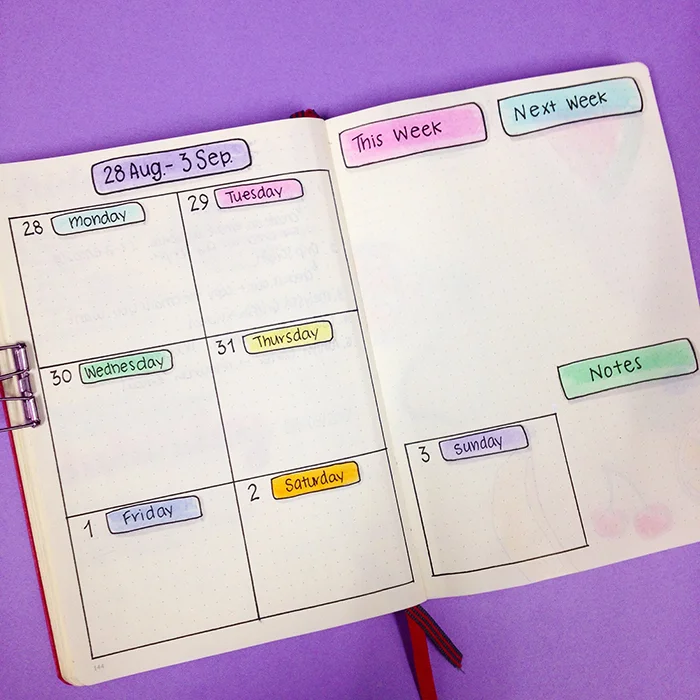 28 Aug.- 3 Sep.
28 monday
29 Tuesday
30 Wednesday
31 Thursday
1 Friday
2 Saturday
This Week
Next Week
Notes
3 sunday
144